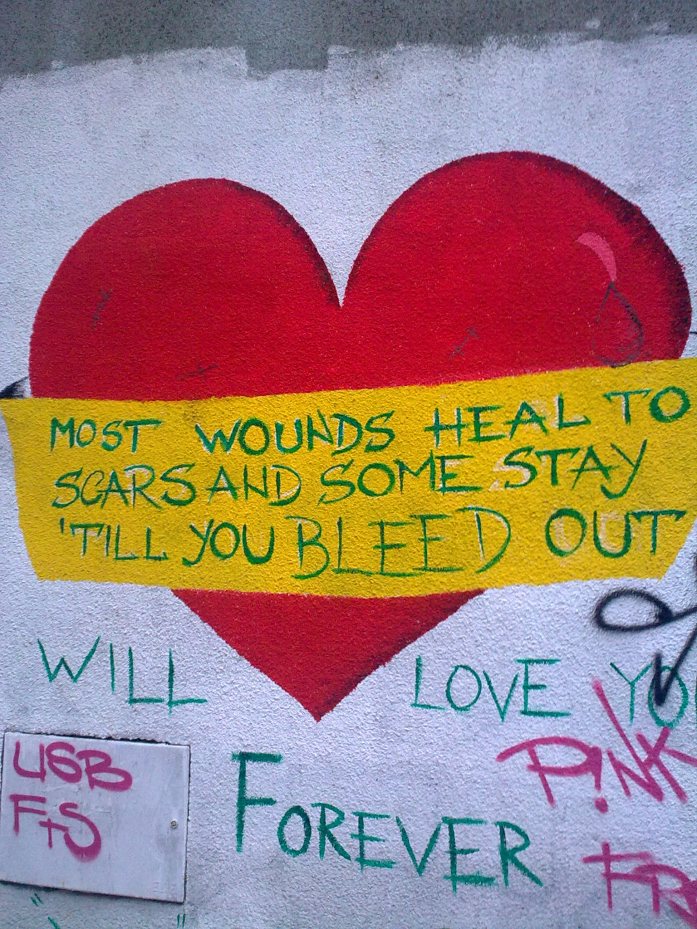 MOST WOUNDS HEAL TO
SCARS AND SOME STAY
'TILL YOU BLEED OUT
WILL LOVE YO
P!NK
USB
FTS
FOREVER
FR